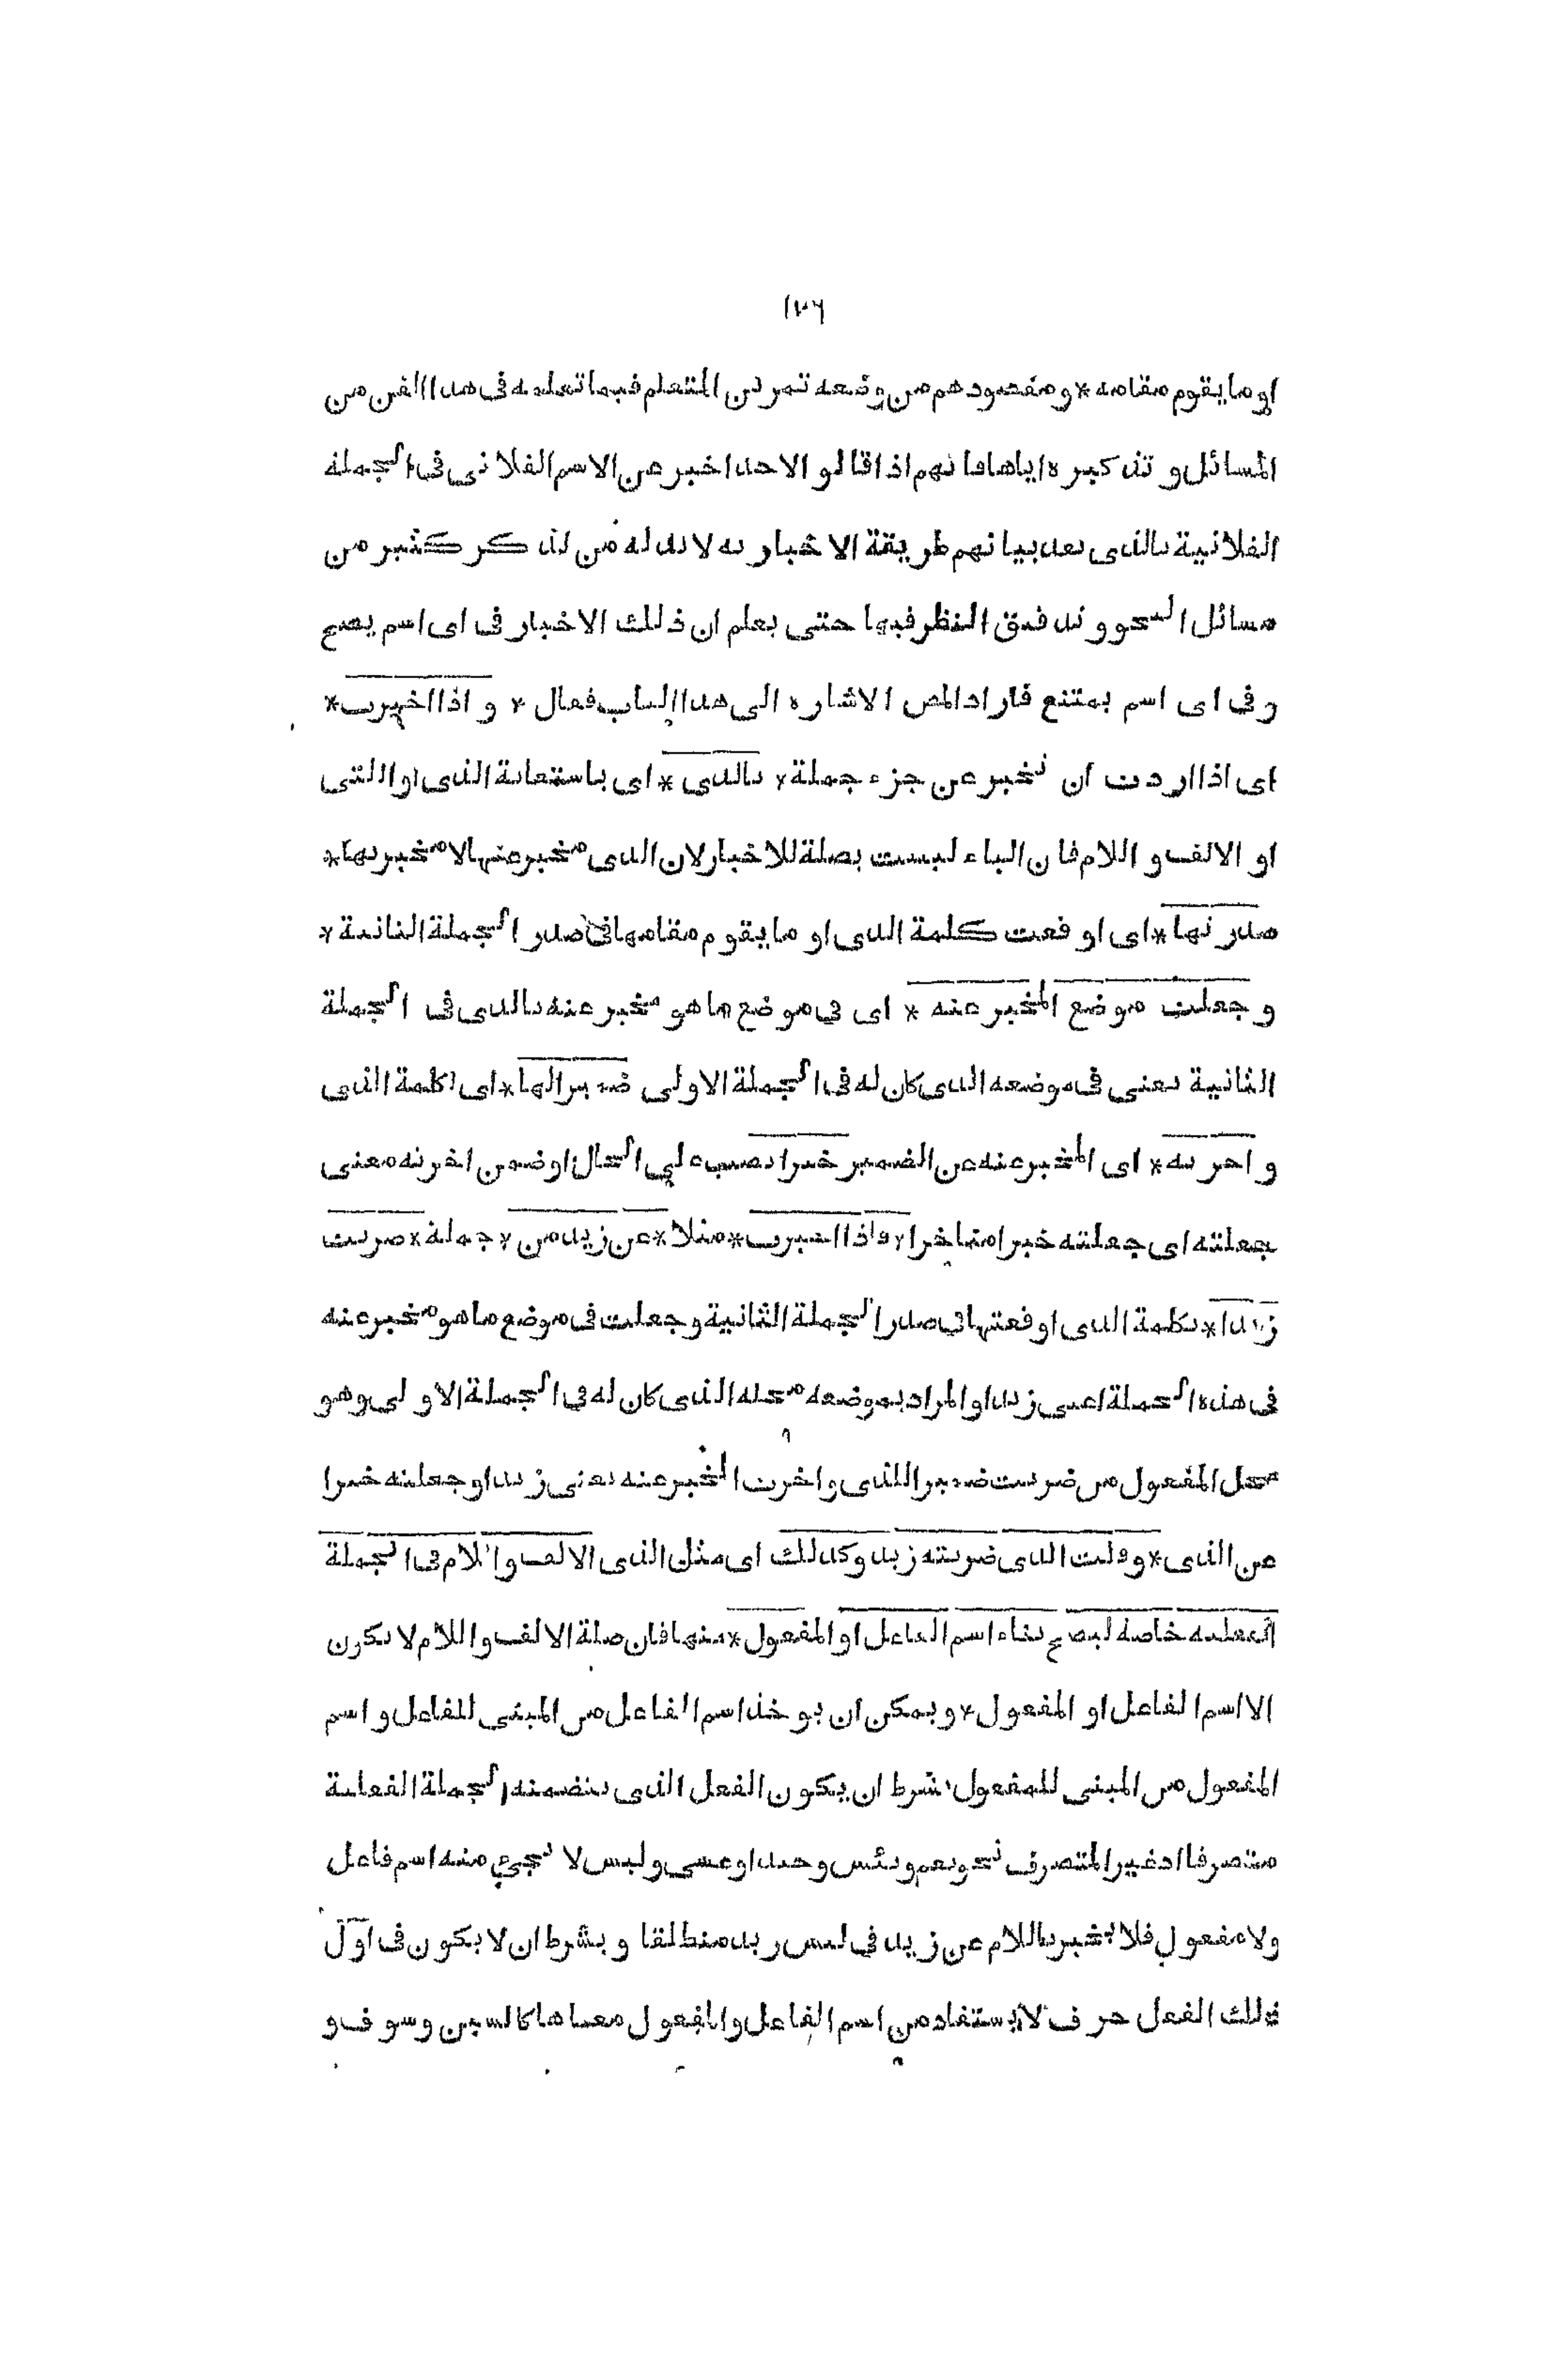 ١٣٦
او ما يقوم مقامه * و مقصودهم من وضعه تمرين المتعلم فيما تعلمه فى هذا الفن من
المسائل و تذكيره اياها فانهم اذا قالوا لاحد اخبر عن الاسم الفلانى فى الجملة
الفلانية بالذى بعد بيانهم طريقة الاخبار به لا بد له من تذكر كثير من
مسائل النحو و تدقيق النظر فيها حتى يعلم ان ذلك الاخبار فى اى اسم يصح
و فى اى اسم يمتنع فاراد المص الاشاره الى هذا الباب فقال * و اذا اخبرت *
اى اذا اردت ان تخبر عن جزء جملة * بالذى * اى باستعانة الذى او التى
او الالف و اللام فان الباء ليست بصلة للاخبار لان الذى مخبر عنها لا مخبر بها *
صدرتها * اى اوقعت كلمة الذى او ما يقوم مقامها فى صدر الجملة الثانية *
و جعلت موضع المخبر عنه * اى فى موضع ما هو مخبر عنه بالذى فى الجملة
الثانية يعنى فى موضعه الذى كان له فى الجملة الاولى ضميرا لها * اى لكلمة الذى
و اخرته * اى المخبر عنه عن الضمير خبرا نصب على الحال او ضمن اخرته معنى
جعلته اى جعلته خبرا متاخرا * فاذا اخبرت * مثلا * عن زيد من * جملة * ضربت
زيدا * بكلمة الذى اوقعتها فى صدر الجملة الثانية و جعلت فى موضع ما هو مخبر عنه
فى هذه الجملة اعنى زيدا و المراد بموضعه محله الذى كان له فى الجملة الاولى وهو
محل المفعول من ضربت ضميرا للذى و اخرت المخبر عنه يعنى زيدا و جعلته خبرا
عن الذى * و قلت الذى ضربته زيد و كذلك اى مثل الذى الالف و اللام فى الجملة
الفعليه خاصة ليصح بناء اسم الفاعل او المفعول * منها فان صلة الالف و اللام لا يكون
الا اسم الفاعل او المفعول * و يمكن ان يوخذ اسم الفاعل من المبنى للفاعل و اسم
المفعول من المبنى للمفعول بشرط ان يكون الفعل الذى يتضمنه الجملة الفعلية
متصرفا اذ غير المتصرف نحو نعم و بئس و حبذا و عسى و ليس لا يجىء منه اسم فاعل
ولا مفعول فلا يخبر باللام عن زيد فى ليس زيد منطلقا و بشرط ان لا يكون فى اول
ذلك الفعل حرف لا يستفاد من اسم الفاعل و المفعول معناها كالسين و سوف و